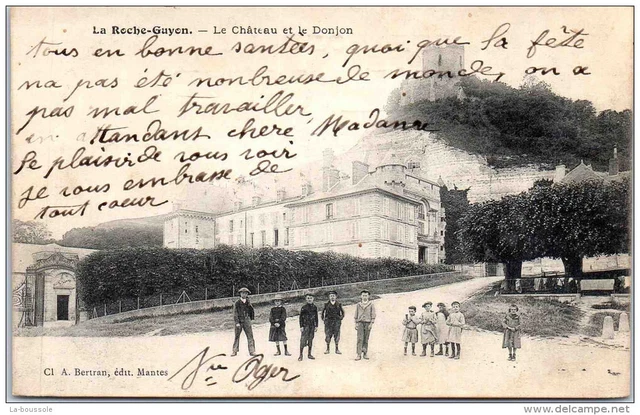 La Roche-Guyon. — Le Château et le Donjon
tous en bonne santées, quoi que la fête
na pas été nonbreuse de monde, on a
pas mal travailler,
en attendant chère Madame
le plaisir de vous voir
je vous embrasse de
tout cœur
Cl A. Bertran, édit. Mantes
Vve Oger
La-boussole
www.delcampe.net